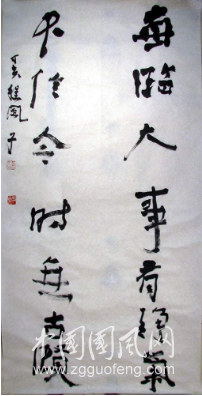 每臨大事有静氣
不信今時無古賢
丁亥程風子
中国国风网
www.zgguofeng.com